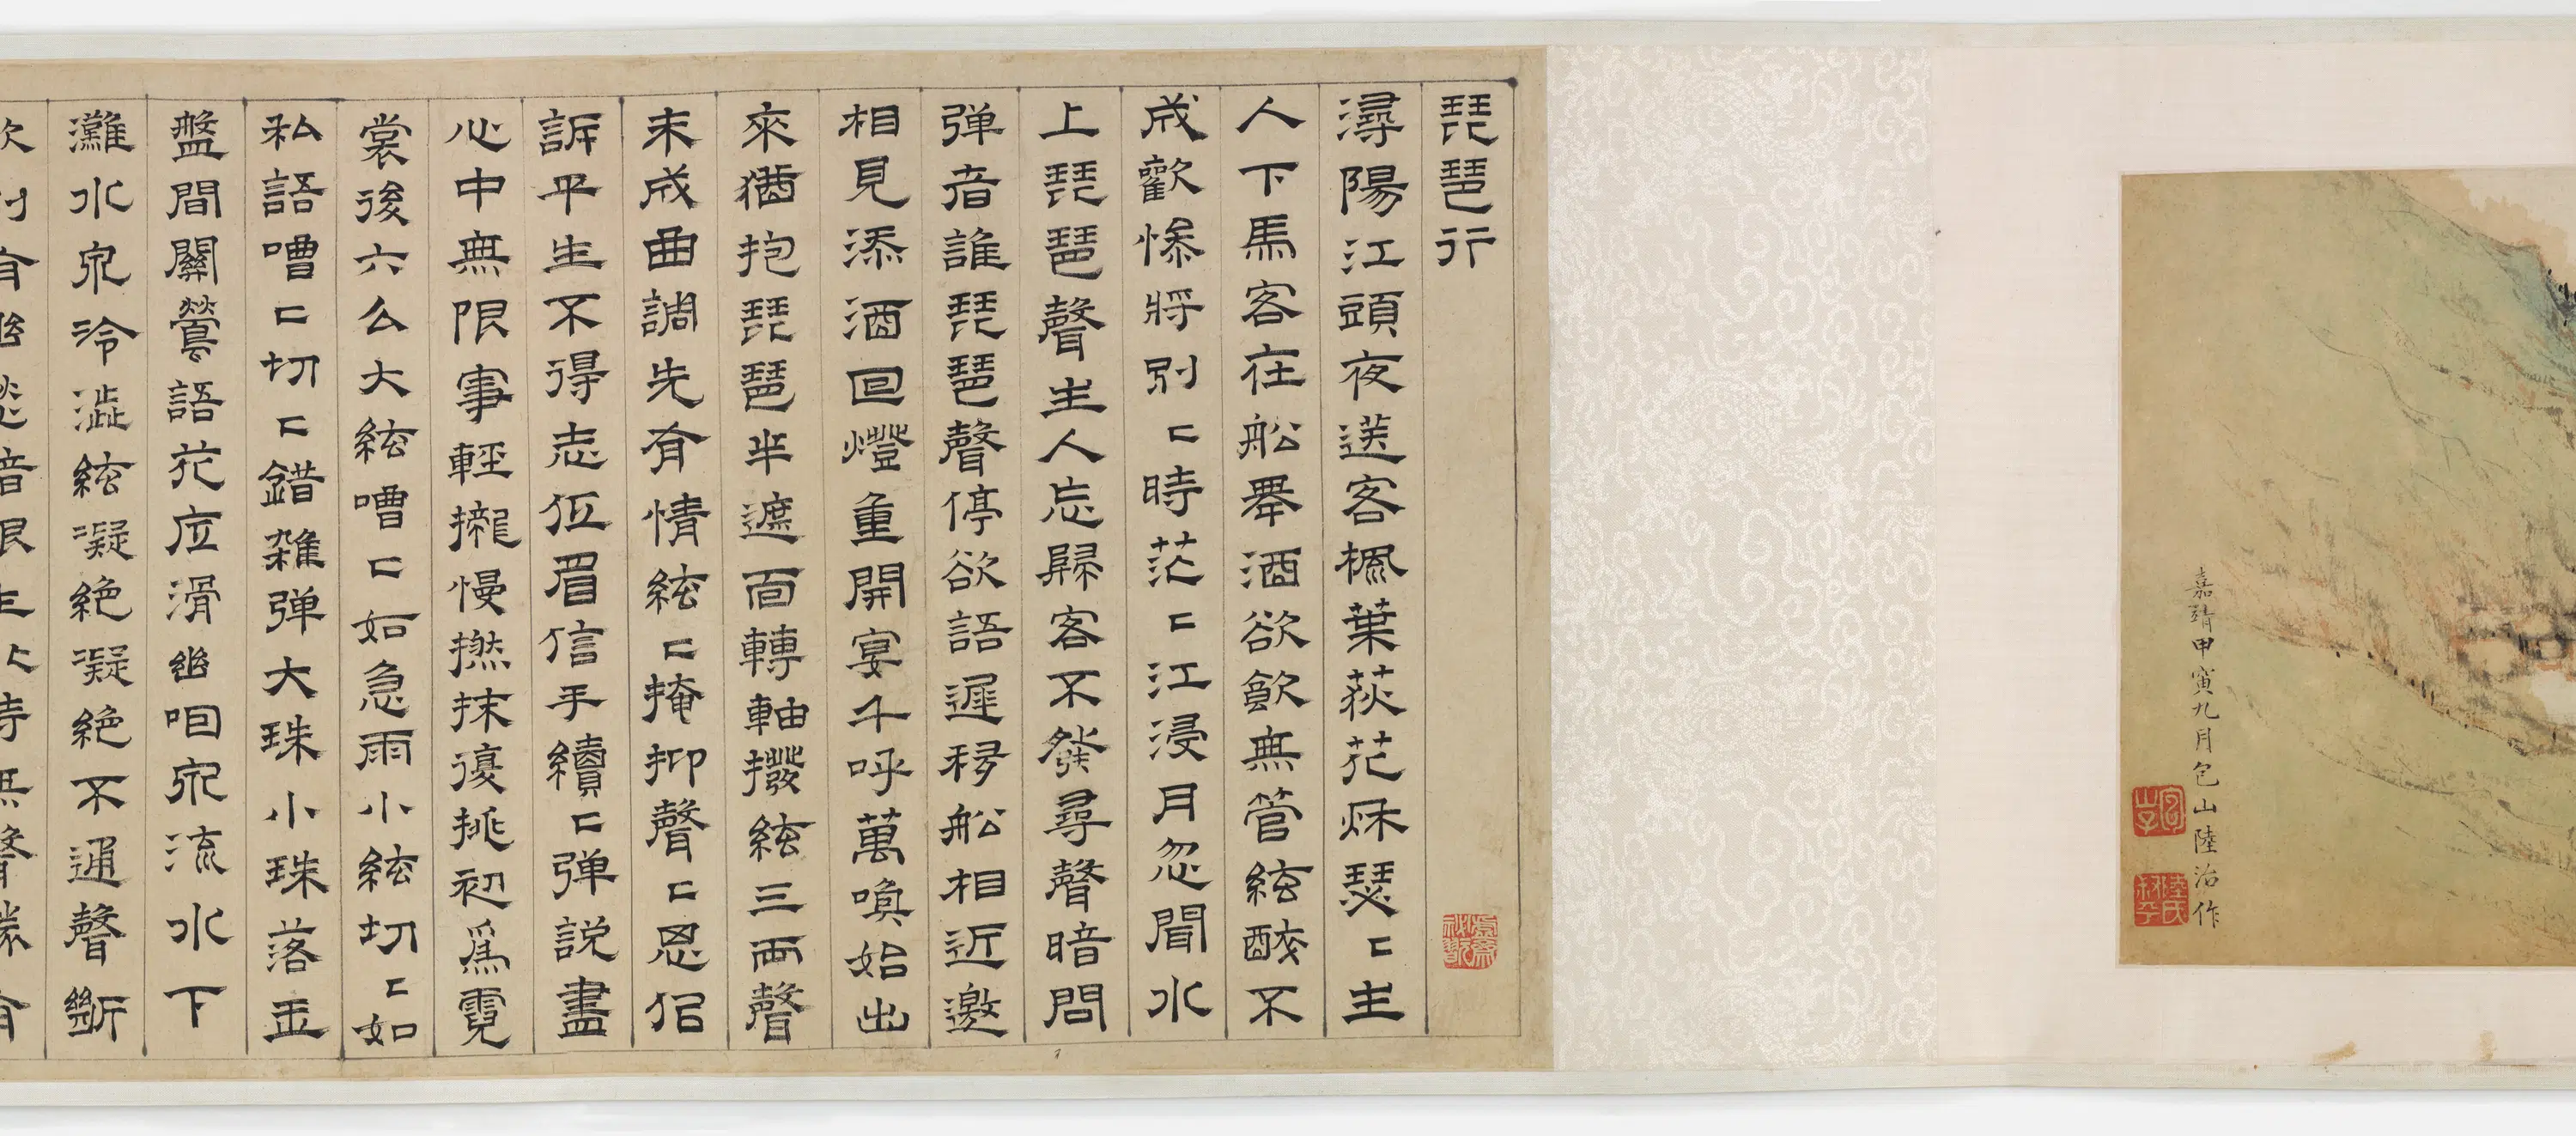 嘉靖甲寅九月包山陸治作
包山子
陸氏叔平
琵琶行
潯陽江頭夜送客楓葉荻花秌瑟〻主
人下馬客在船舉酒欲飲無管絃醉不
成歡慘將別〻時茫〻江浸月忽聞水
上琵琶聲主人忘歸客不發尋聲暗問
弹音誰琵琶聲停欲語遲移船相近邀
相見添酒回燈重開宴千呼萬喚始出
來猶抱琵琶半遮面轉軸撥絃三兩聲
未成曲調先有情絃〻掩抑聲〻思佀
訴平生不得志低眉信手續〻弹說盡
心中無限事輕攏慢撚抹復挑初爲霓
裳後六么大絃嘈〻如急雨小絃切〻如
私語嘈〻切〻錯雜弹大珠小珠落玉
盤間關鶯語花底滑幽咽泉流水下
灘水泉冷澀絃凝絶凝絶不通聲斷